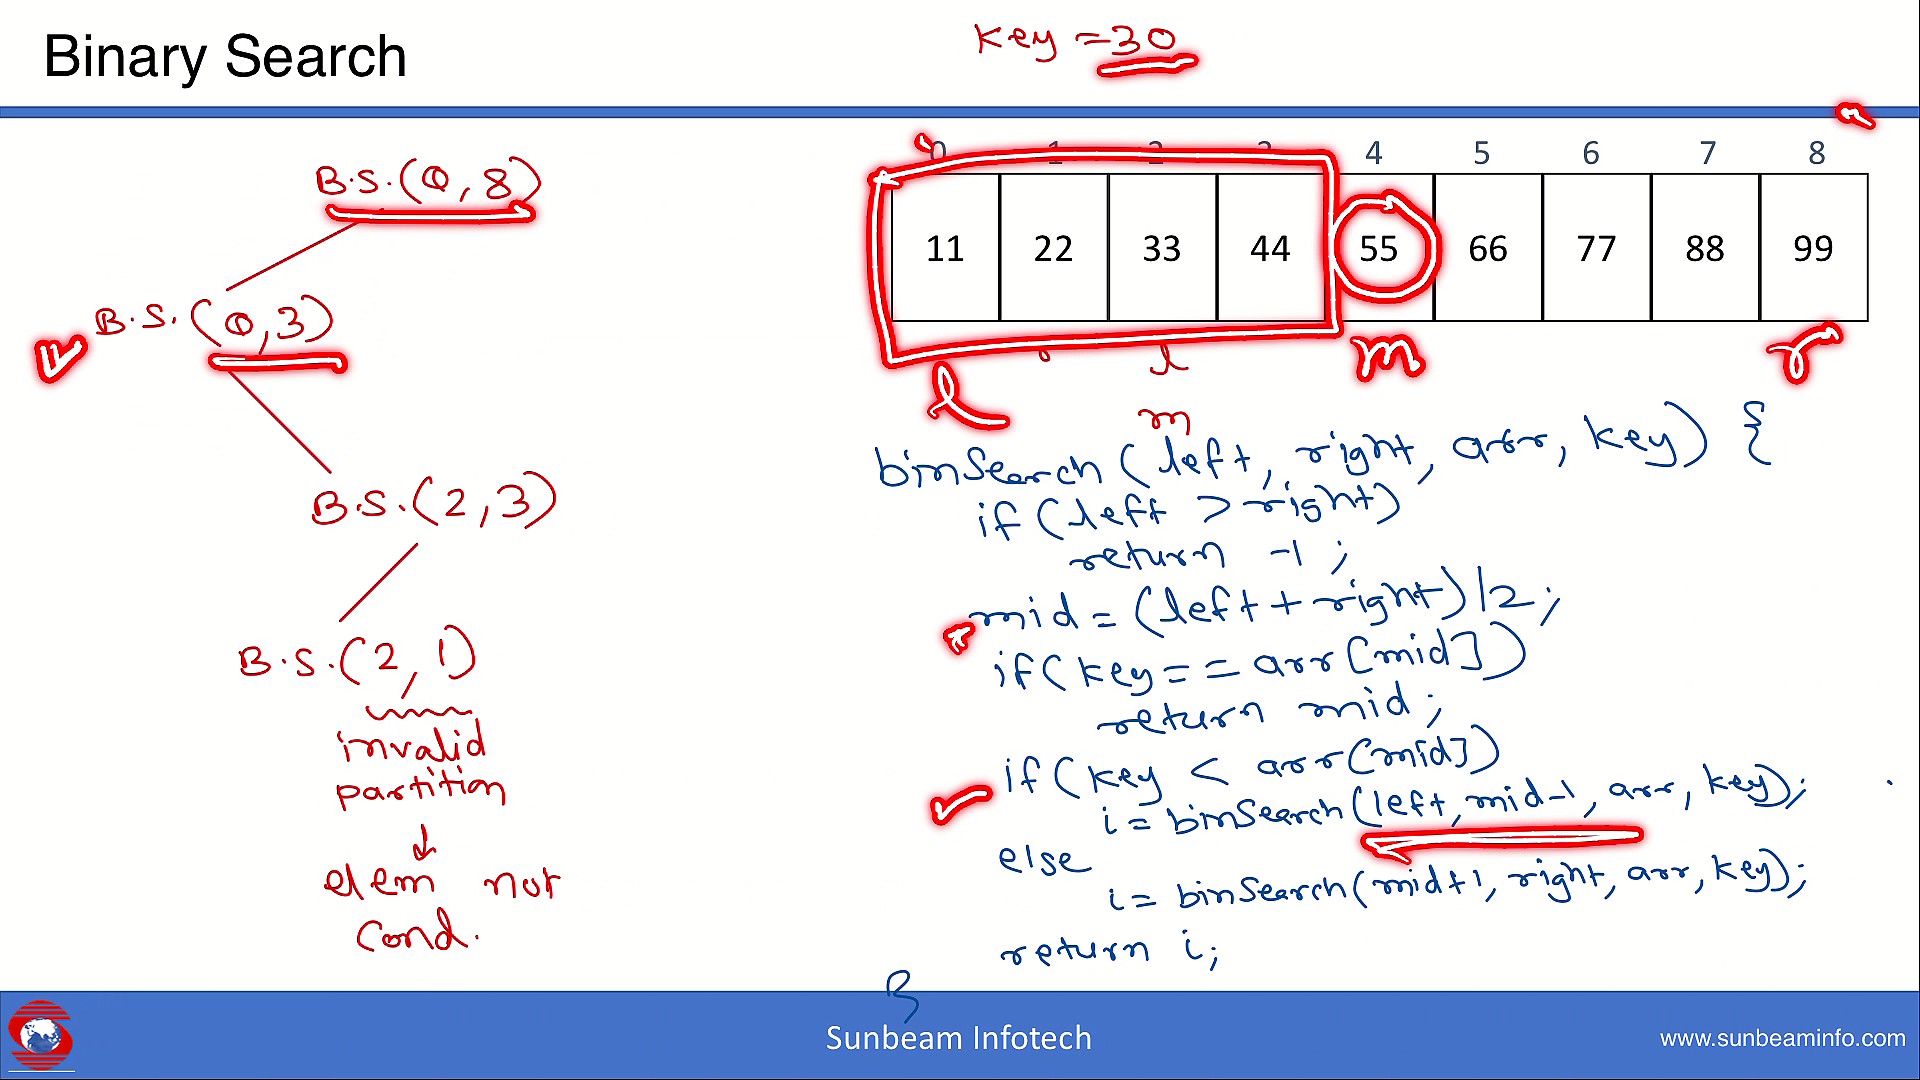 Binary Search
key = 30
B.S.(0,8)
B.S.(0,3)
B.S.(2,3)
B.S.(2,1)
invalid
partition
elem not
cond.
0 1 2 3 4 5 6 7 8
11 22 33 44 55 66 77 88 99
l m r
m
binSearch(left, right, arr, key) {
if(left > right)
return -1;
mid = (left + right)/2;
if(key == arr[mid])
return mid;
if(key < arr[mid])
i = binSearch(left, mid-1, arr, key);
else
i = binSearch(mid+1, right, arr, key);
return i;
}
Sunbeam Infotech
www.sunbeaminfo.com